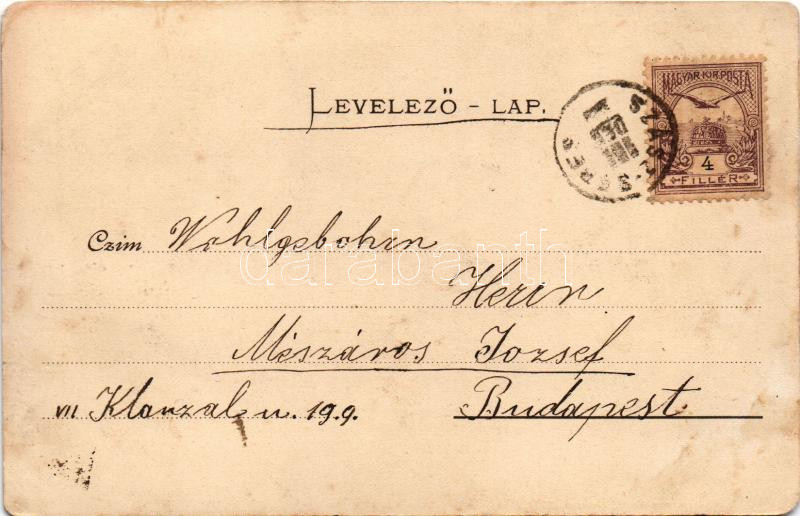 MAGYAR KIR. POSTA
4
FILLÉR
LEVELEZŐ - LAP.
Czim Wohlgebohren
darabanth
Herrn
Mészáros Jozsef
VII Klauzal u. 19.9. Budapest